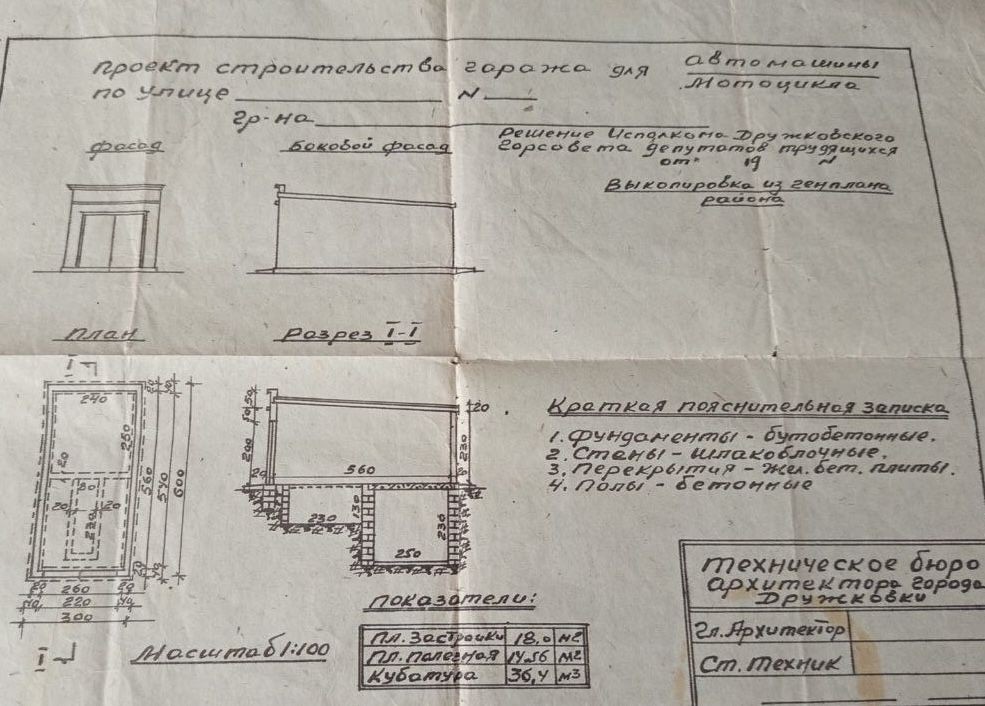 проект строительства гаража для автомашины
мотоцикла
по улице N
гр-на
Решение Исполкома Дружковского
горсовета депутатов трудящихся
от" 19 N
Выкопировка из генплана
района
фасад
боковой фасад
план
разрез I-I
I
240
250
20
80
20 20
230
20 40
560 540 600
20 40
20 260 20
40 220 40
300
I
Масштаб 1:100
50
200
20
560
20
230
20
230
130
230
250
Краткая пояснительная записка
1. Фундаменты - бутобетонные.
2. Стены - шлакоблочные.
3. Перекрытия - жел. бет. плиты.
4. Полы - бетонные
показатели:
Пл. Застройки 18,0 м2
Пл. Полезная 14.56 м2
Кубатура 36,4 м3
техническое бюро
архитектора города
Дружковки
Гл. Архитектор
Ст. техник